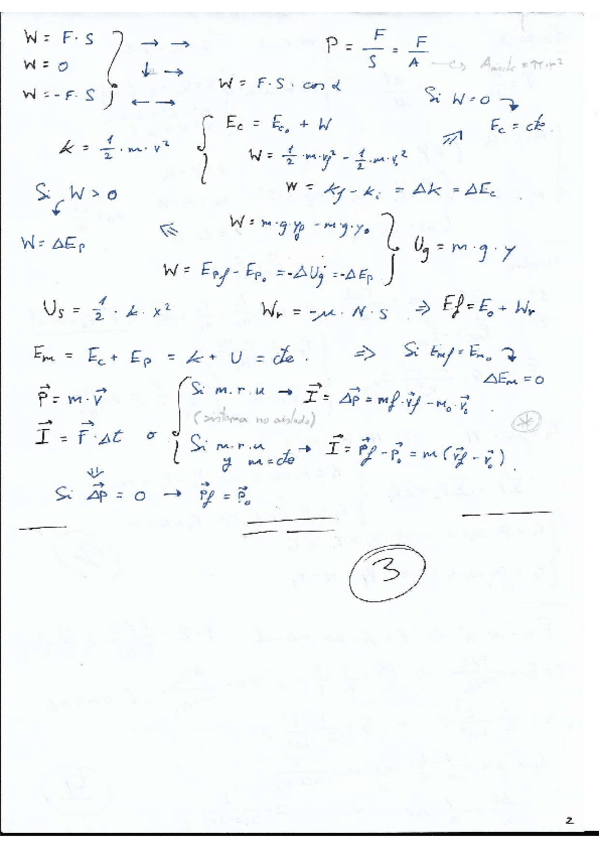 W = F · S } → →
W = 0 } ↓ →
W = -F · S } ← →
P = F/S = F/A → A = π·r²
W = F · S · cos α
Si W = 0
Ec = cte.
k = 1/2 · m · v²
Ec = Ec₀ + W
W = 1/2 · m · vf² - 1/2 · m · v₀²
W = kf - ki = Δk = ΔEc
Si W > 0
W = ΔEp
W = m·g·yf - m·g·y₀
W = Epf - Ep₀ = -ΔUg = -ΔEp
Ug = m · g · y
Us = 1/2 · k · x²
Wr = -μ · N · s ⇒ Ef = E₀ + Wr
Em = Ec + Ep = k + U = cte. ⇒ Si Emf = Em₀
ΔEm = 0
P⃗ = m · v⃗
I⃗ = F⃗ · Δt o
Si m.r.u → I⃗ = ΔP⃗ = mf · v⃗f - m₀ · v⃗₀
(sistema no aislado)
Si m.r.u y m = cte → I⃗ = P⃗f - P⃗₀ = m (v⃗f - v⃗₀).
(*)
Si ΔP⃗ = 0 → P⃗f = P⃗₀
3
2